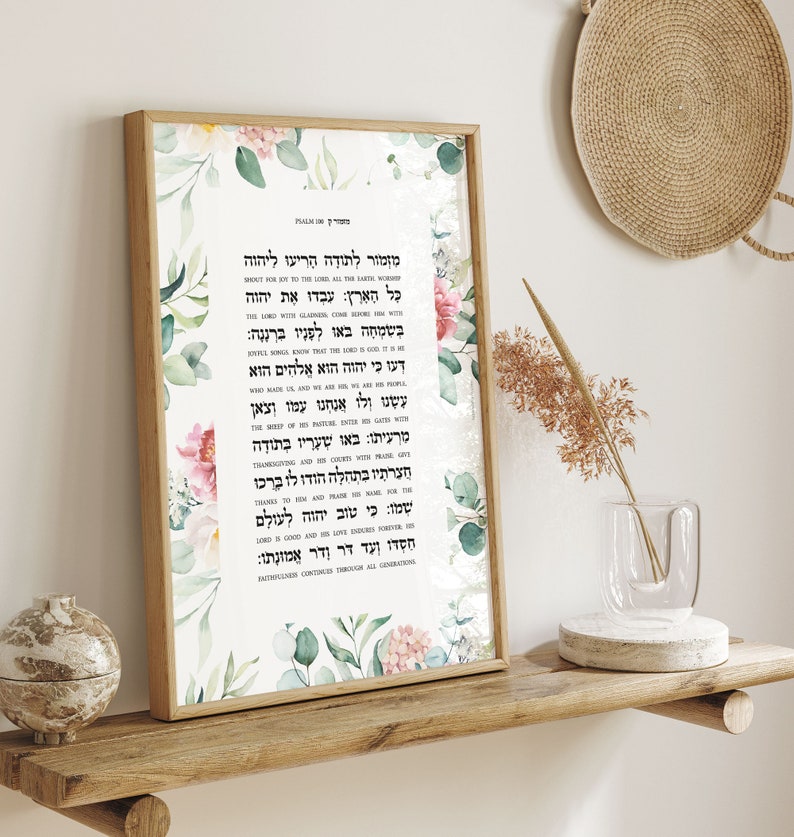 PSALM 100 מזמור ק
מִזְמוֹר לְתוֹדָה הָרִיעוּ לַיהוָה
SHOUT FOR JOY TO THE LORD, ALL THE EARTH. WORSHIP
כָּל הָאָרֶץ: עִבְדוּ אֶת יְהוָה
THE LORD WITH GLADNESS; COME BEFORE HIM WITH
בְּשִׂמְחָה בֹּאוּ לְפָנָיו בִּרְנָנָה:
JOYFUL SONGS. KNOW THAT THE LORD IS GOD. IT IS HE
דְּעוּ כִּי יְהוָה הוּא אֱלֹהִים הוּא
WHO MADE US, AND WE ARE HIS; WE ARE HIS PEOPLE,
עָשָׂנוּ וְלוֹ אֲנַחְנוּ עַמּוֹ וְצֹאן
THE SHEEP OF HIS PASTURE. ENTER HIS GATES WITH
מַרְעִיתוֹ: בֹּאוּ שְׁעָרָיו בְּתוֹדָה
THANKSGIVING AND HIS COURTS WITH PRAISE; GIVE
חֲצֵרֹתָיו בִּתְהִלָּה הוֹדוּ לוֹ בָּרְכוּ
THANKS TO HIM AND PRAISE HIS NAME. FOR THE
שְׁמוֹ: כִּי טוֹב יְהוָה לְעוֹלָם
LORD IS GOOD AND HIS LOVE ENDURES FOREVER; HIS
חַסְדּוֹ וְעַד דֹּר וָדֹר אֱמוּנָתוֹ:
FAITHFULNESS CONTINUES THROUGH ALL GENERATIONS.